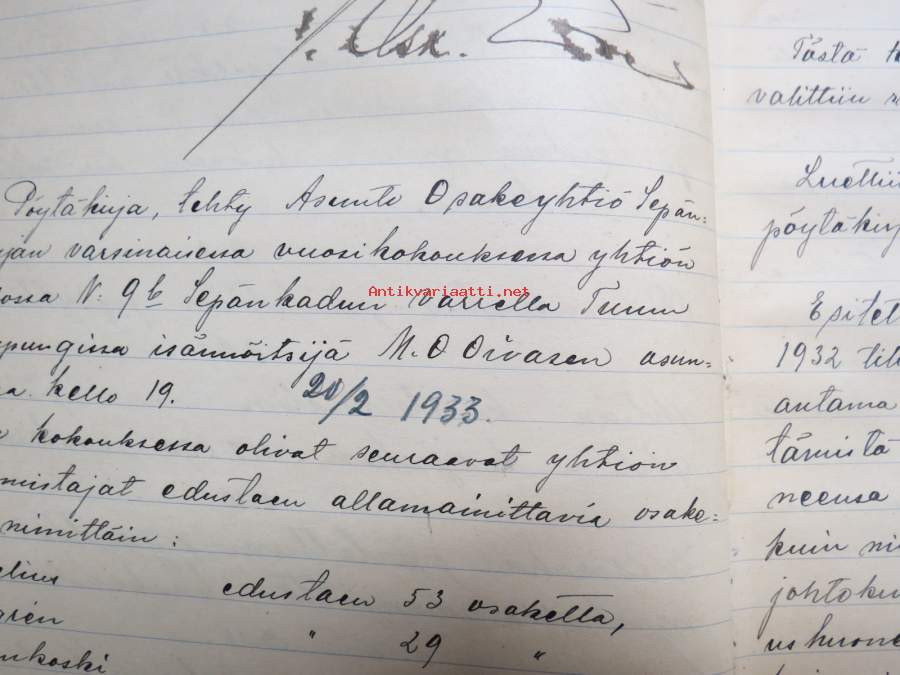 J. Osk.
Pöytäkirja, tehty Asunto Osakeyhtiö Sepän-
jan varsinaisessa vuosikokouksessa yhtiön
ossa N: 9b Sepänkadun varrella Turun
pungissa isännöitsijä M. O Oivasen asun-
a kello 19. 20/2 1933.
kokouksessa olivat seuraavat yhtiön
mistajat edustaen allamainittavia osake-
nimittäin:
elius edustaen 53 osaketta,
" 29 "
nkoski
Antikvariaatti.net
Tästä
valittiin
Luettiin
pöytäkirj
Esitet
1932 tili
antama
tämistä
neensa
kuin
johtoku
us huone